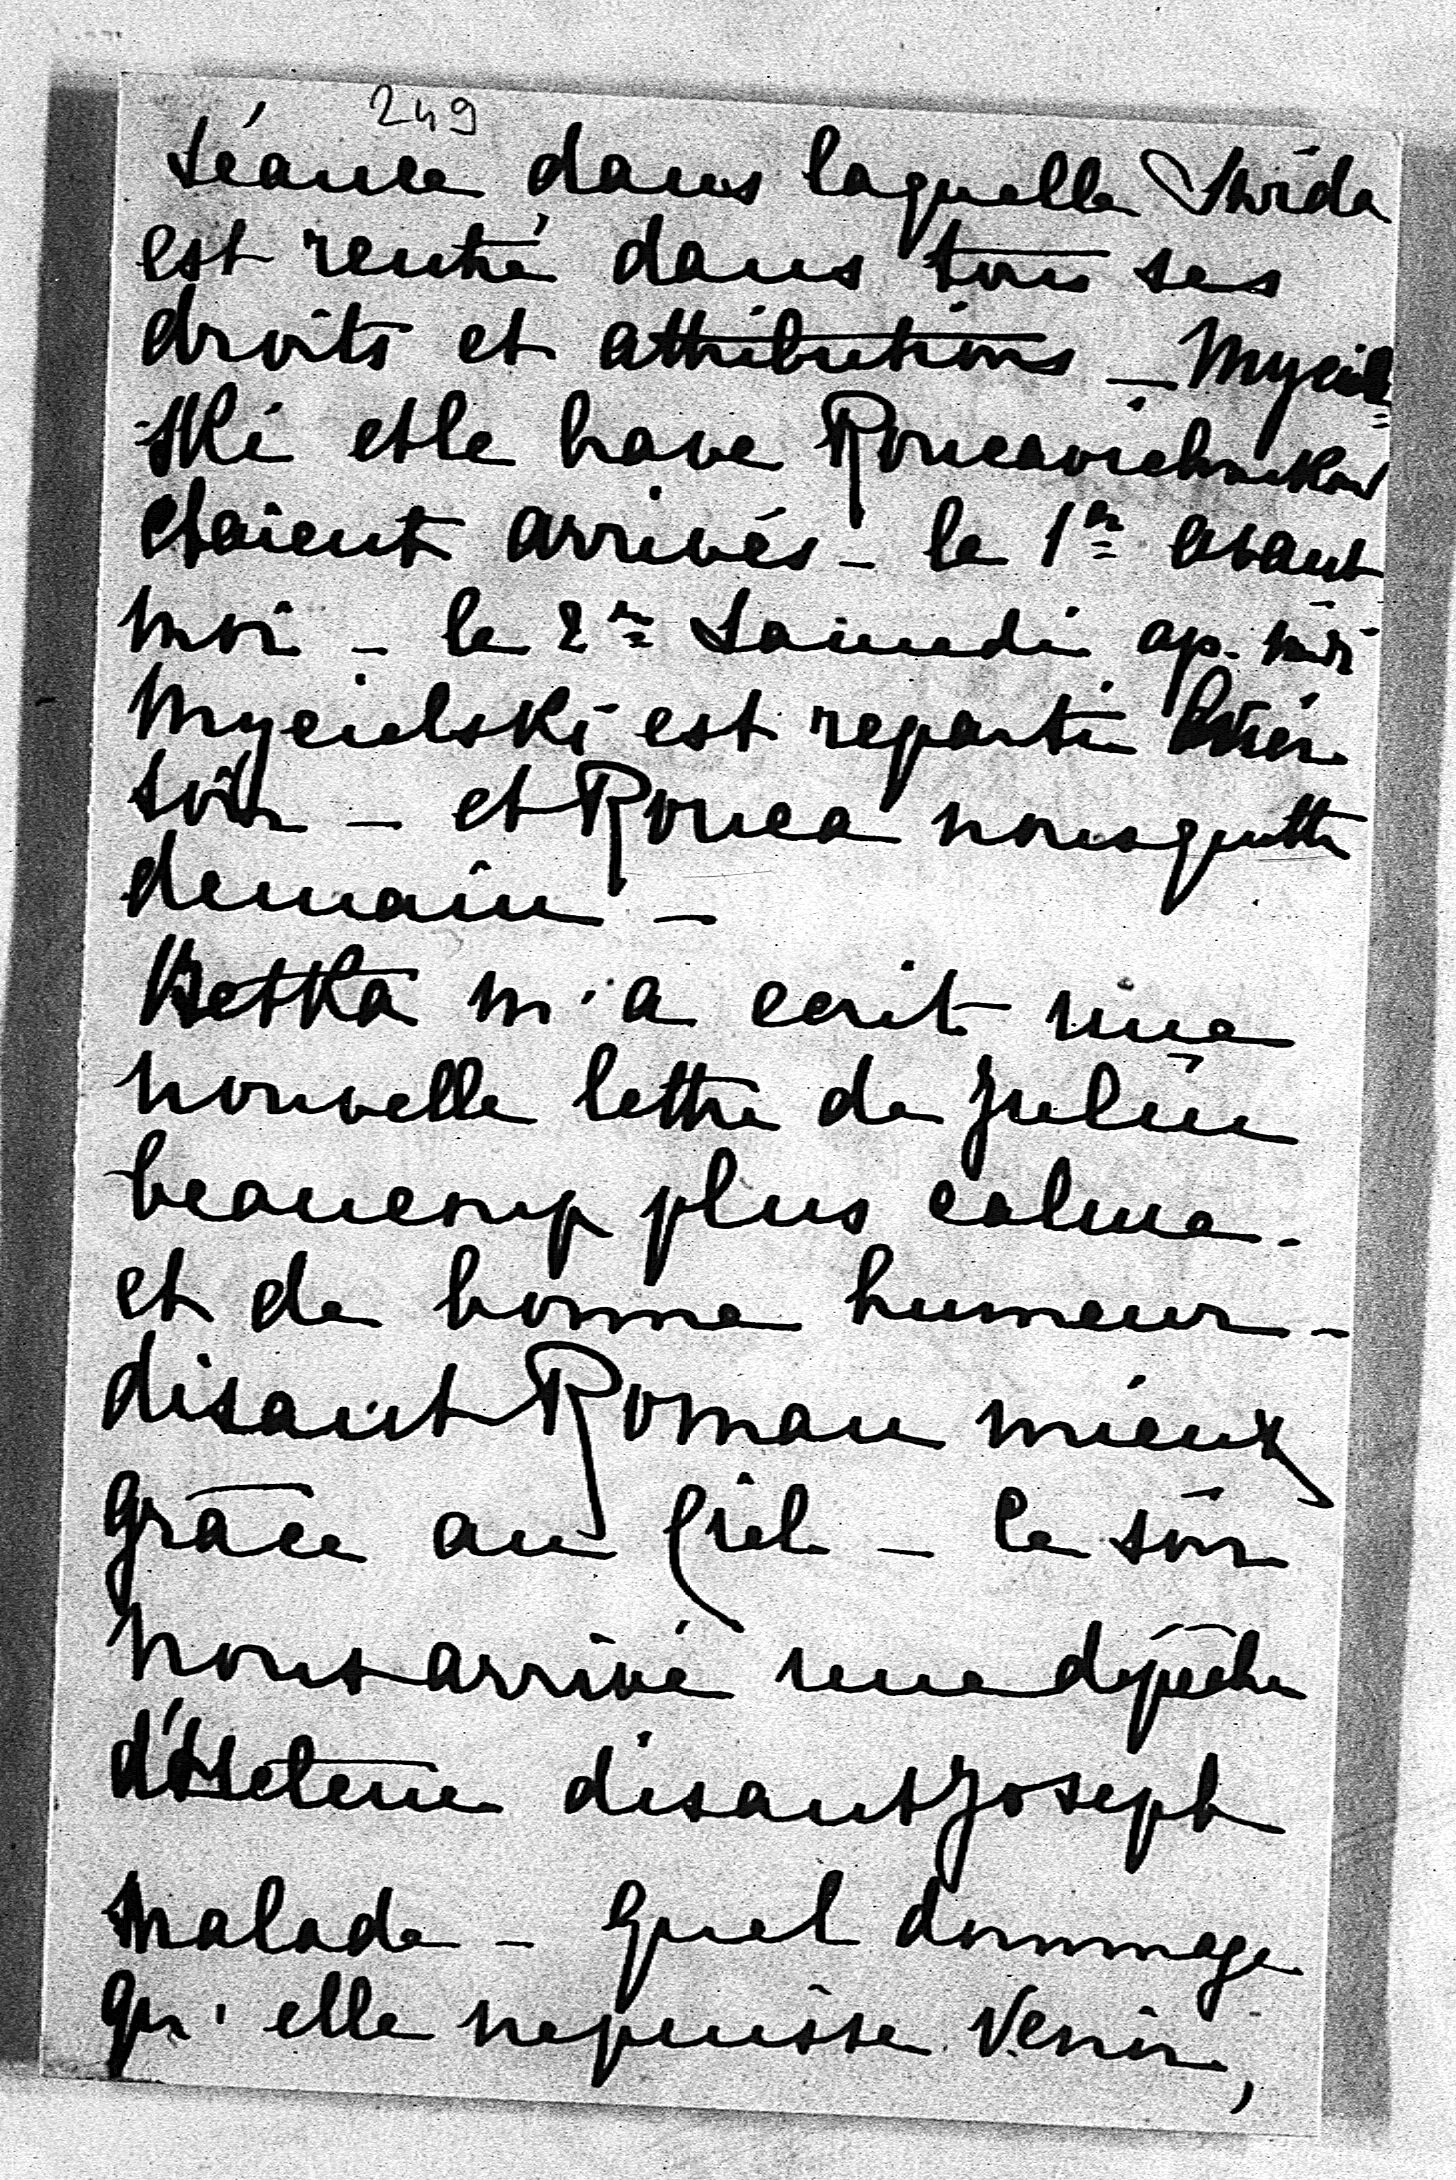 249
séance dans laquelle Swida
est rentré dans tous ses
droits et attributions _ Myciel
-ski et le brave
etaient arrivés _ le 1er avant
moi _ le 2me Samedi ap. midi
Mycielski est reparti hier
soir _ et Rouca nous quitte
demain _
Betka m'a ecrit une
nouvelle lettre de Julie
beaucoup plus calme _
et de bonne humeur _
disant Roman mieux
grâce au Ciel _ le soir
nous arrive une dépêche
disant Joseph
Malade _ quel dommage
qu'elle ne puisse venir,